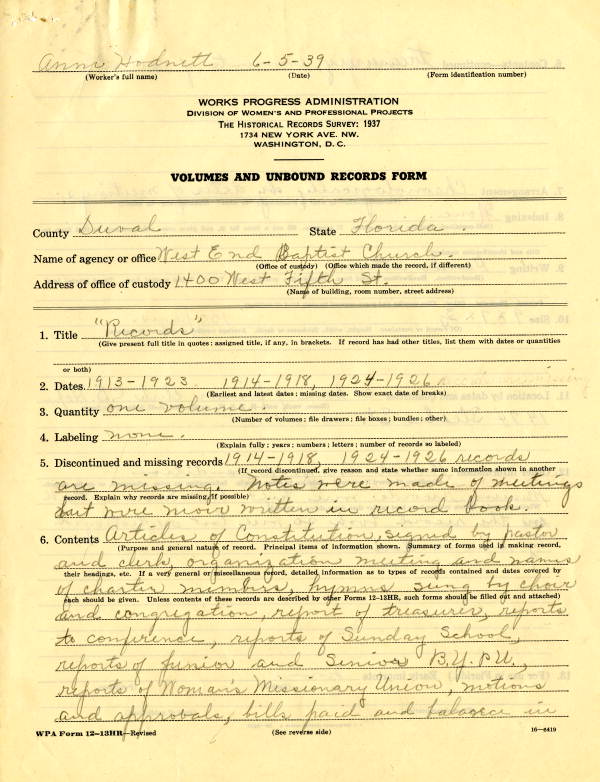 Anni Hodnett 6-5-39
(Worker's full name) (Date) (Form identification number)
WORKS PROGRESS ADMINISTRATION
DIVISION OF WOMEN'S AND PROFESSIONAL PROJECTS
THE HISTORICAL RECORDS SURVEY: 1937
1734 NEW YORK AVE. NW.
WASHINGTON, D. C.
VOLUMES AND UNBOUND RECORDS FORM
County Duval State Florida.
Name of agency or office West End Baptist Church.
(Office of custody) (Office which made the record, if different)
Address of office of custody 1400 West Fifth St.
(Name of building, room number, street address)
1. Title "Records"
(Give present full title in quotes; assigned title, if any, in brackets. If record has had other titles, list them with dates or quantities
or both)
2. Dates 1913-1923 1914-1918, 1924-1926
(Earliest and latest dates; missing dates. Show exact date of breaks)
3. Quantity one volume.
(Number of volumes; file drawers; file boxes; bundles; other)
4. Labeling none.
(Explain fully; years; numbers; letters; number of records so labeled)
5. Discontinued and missing records 1914-1918, 1924-1926 records
(If record discontinued, give reason and state whether same information shown in another
are missing. Notes were made of meetings
record. Explain why records are missing, if possible)
but were never written in record book.
6. Contents Articles of Constitution, signed by pastor
(Purpose and general nature of record. Principal items of information shown. Summary of forms used in making record,
and clerk, organization meeting and names
their headings, etc. If a very general or miscellaneous record, detailed information as to types of records contained and dates covered by
of charter members, hymns sung by choir
each should be given. Unless contents of these records are described by other Forms 12-13HR, such forms should be filled out and attached)
and congregation, report of treasurer, reports
to conference, reports of Sunday School,
reports of Junior and Senior B.Y.P.U.,
reports of Woman's Missionary Union, motions
and approvals, bills paid and balance in
WPA Form 12-13HR—Revised (See reverse side) 16-6419